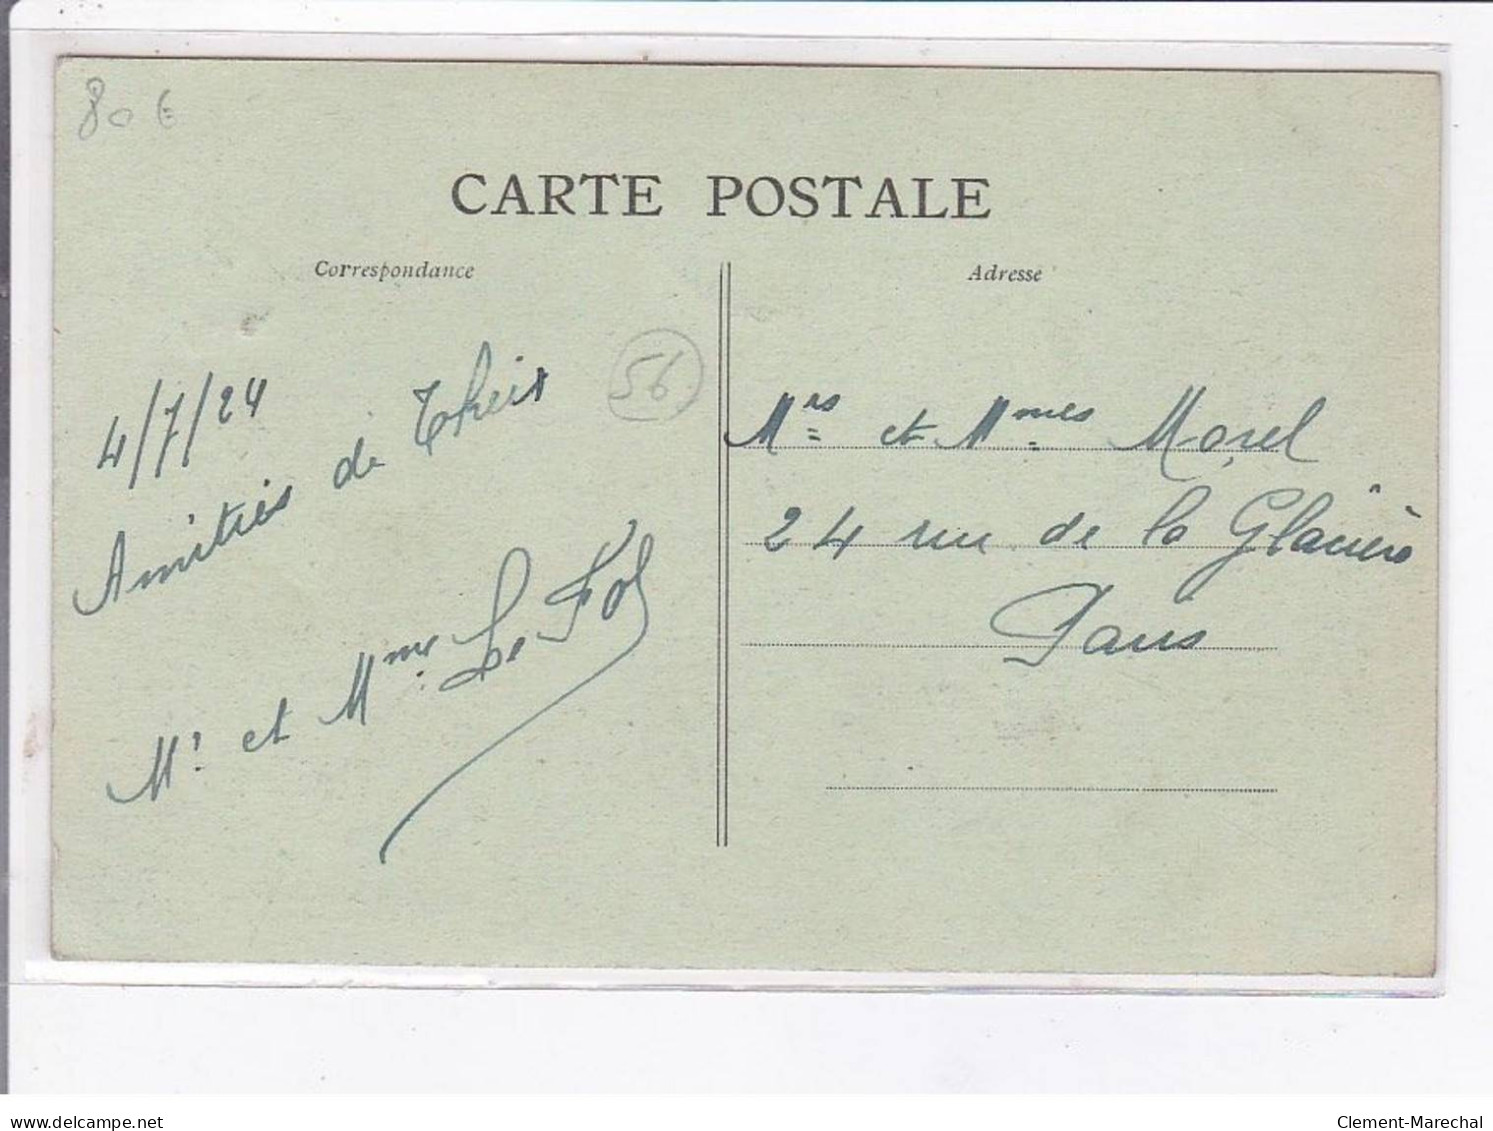 80 €
CARTE POSTALE
Correspondance
Adresse
4/7/24
56
Amitiés de Theix
Mr et Mme Le Fol
Mrs et Mmes Morel
24 rue de la Glacière
Paris
delcampe.net
Clement-Marechal